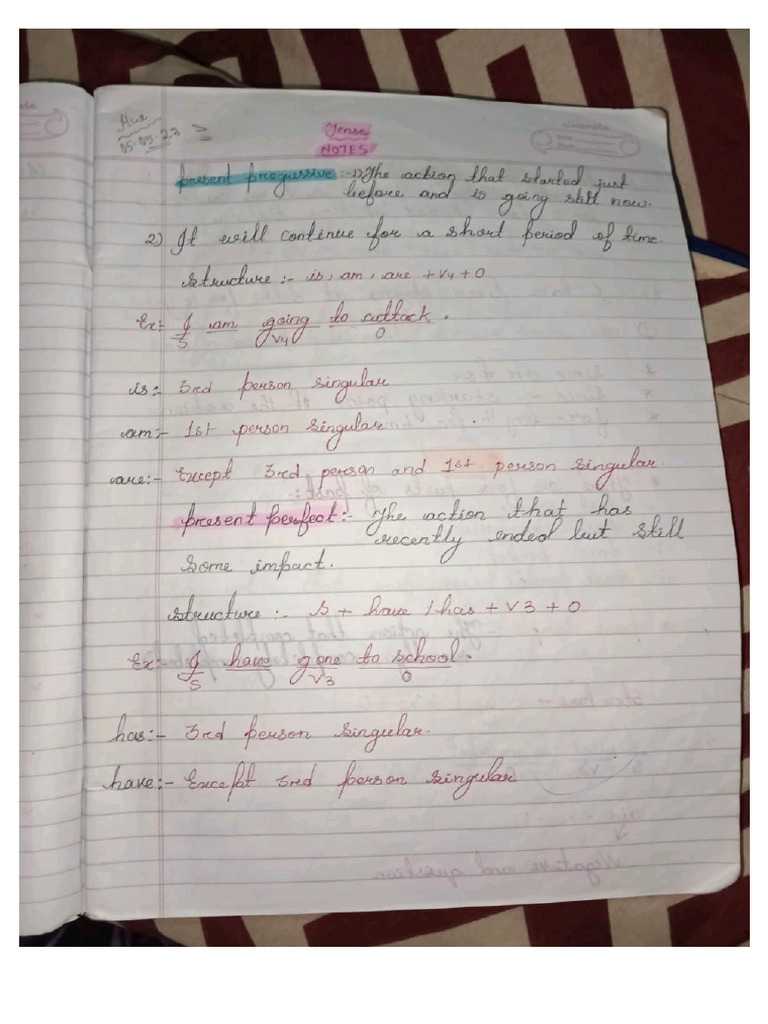 05.05.23
Tense
NOTES
present progressive :- 1) The action that started just
before and is going still now.
2) It will continue for a short period of time.
structure :- is, am, are + V4 + O
Ex:- I am going to attack.
S V4 O
is:- 3rd person singular
am:- 1st person singular
are:- Except 3rd person and 1st person singular.
present perfect:- The action that has
recently ended but still
some impact.
structure :- S + have / has + V3 + O
Ex:- I have gone to school.
S V3 O
has:- 3rd person singular.
have:- Except 3rd person singular